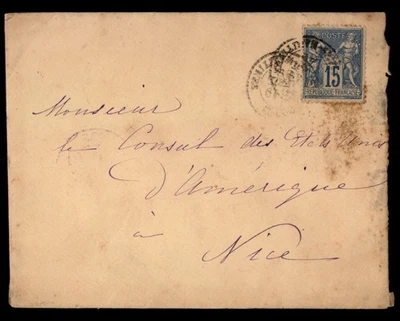 POSTE
15
REPUBLIQUE FRANCAISE
Monsieur
le Consul des Etats Unis
d'Amérique
à
Nice